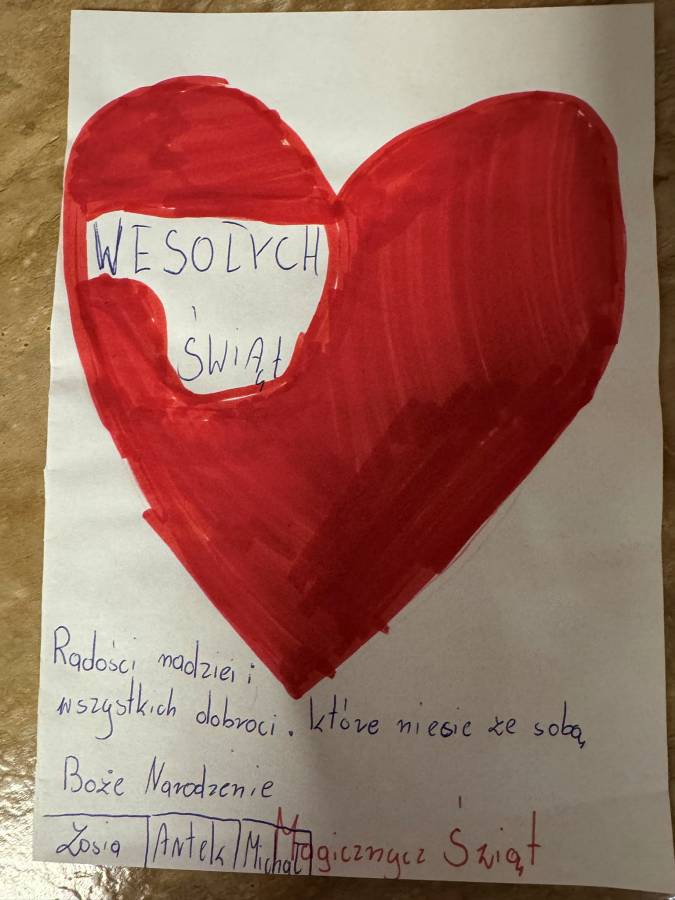 WESOŁYCH
ŚWIĄt
Radości nadziei i
wszystkich dobroci. które niesie ze sobą
Boże Narodzenie
Zosia Antek Michał Magicznycz Świąt